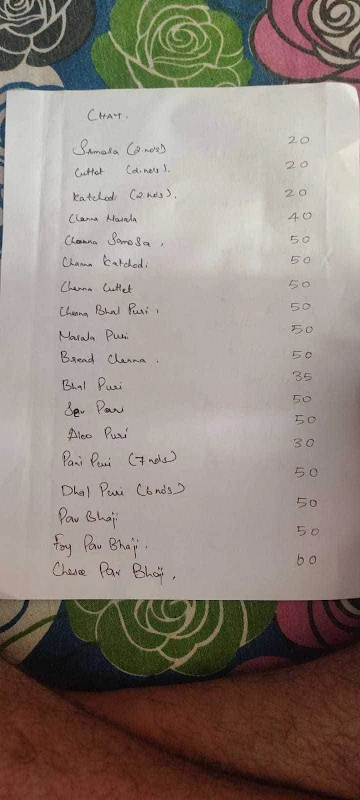 CHAT.
Samosa (2 nos) 20
Cuttet (2 nos). 20
Katchodi (2 nos). 20
Channa Masala 40
Channa Samosa. 50
Channa Katchodi 50
Channa Cuttet 50
Channa Bhal Puri. 50
Masala Puri 50
Bread Channa. 50
Bhal Puri 35
Sev Puri 50
Aloo Puri 50
Pani Puri (7 nos) 30
Dhal Puri (6 nos) 50
Pav Bhaji 50
Fry Pav Bhaji. 50
Cheese Pav Bhaji. 60